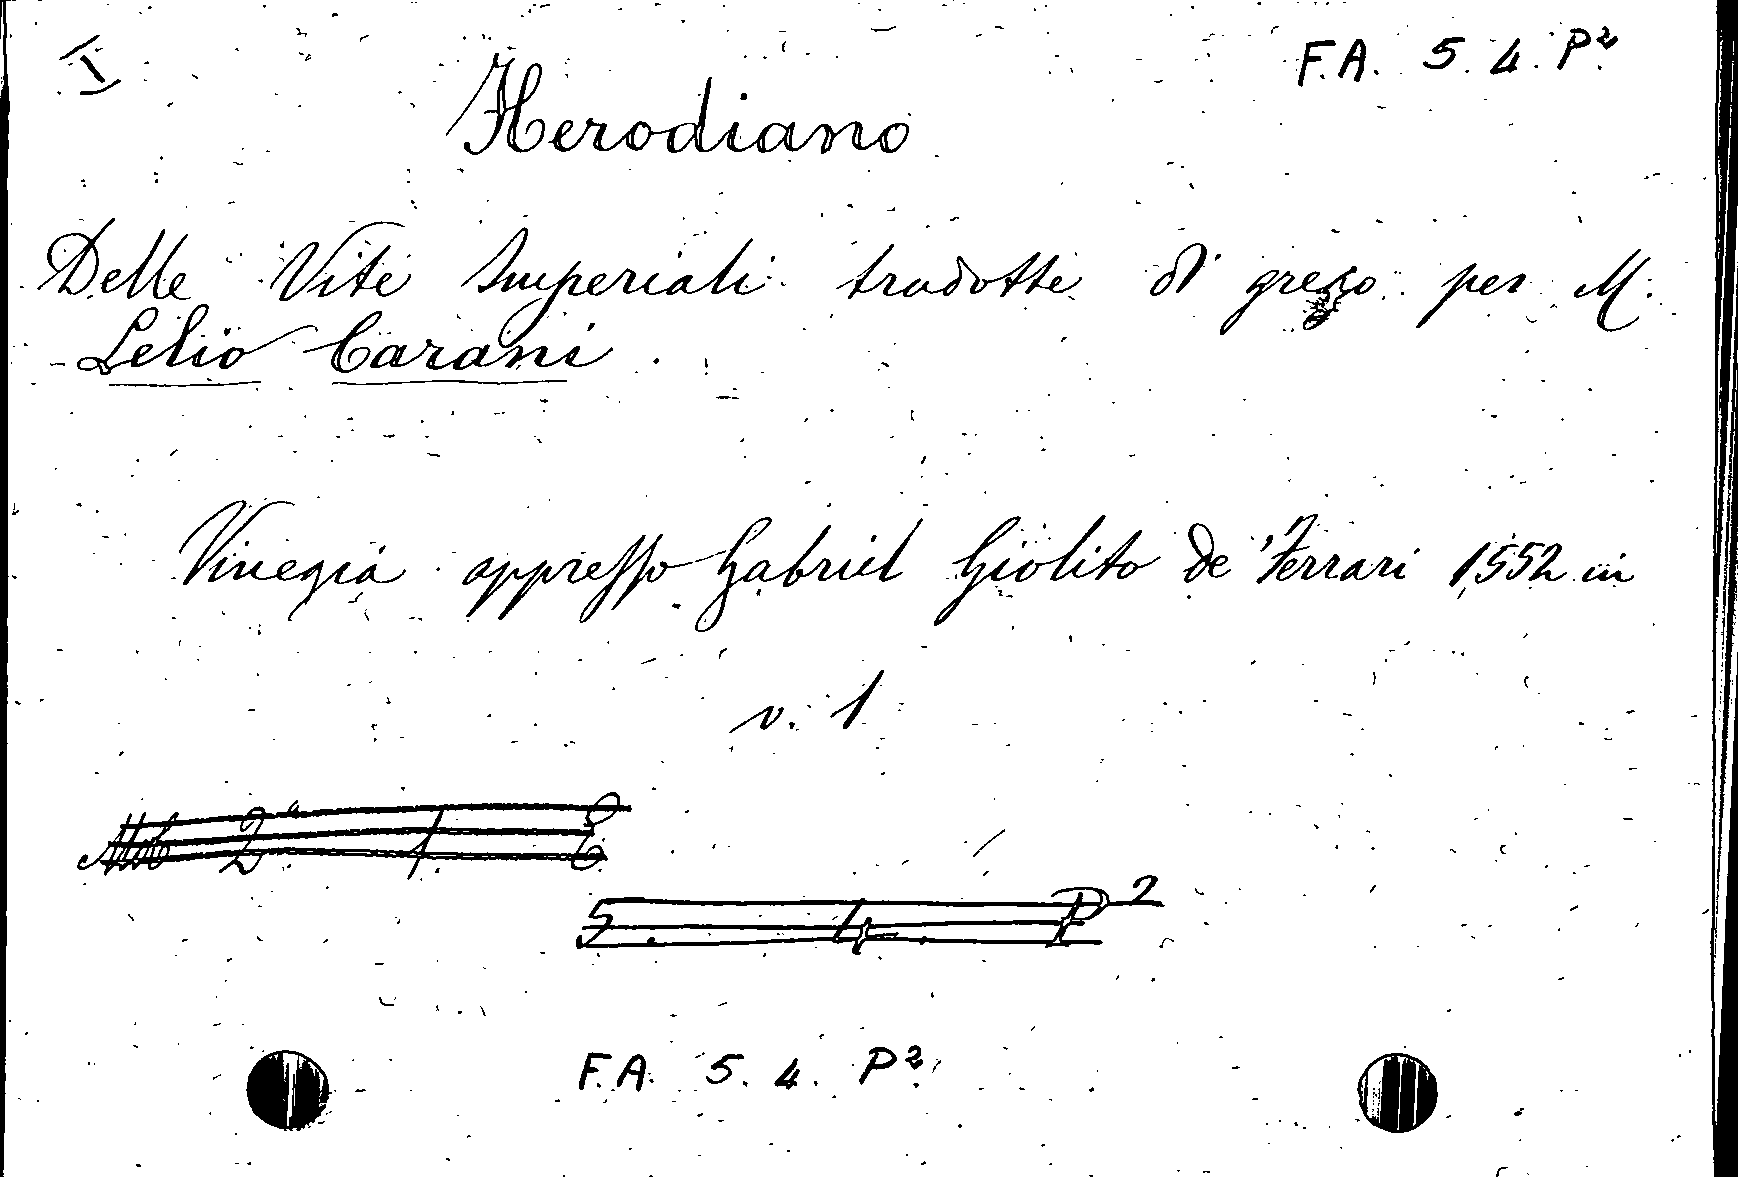 I
F.A. 5. 4. P²
Herodiano
Delle Vite Imperiali tradotte di greco per M.
Lelio Carani.
Vinegia appresso Gabriel Giolito de' Ferrari 1552 in
v. 1
2ª 1.
5. 4. P²
F.A. 5. 4. P²